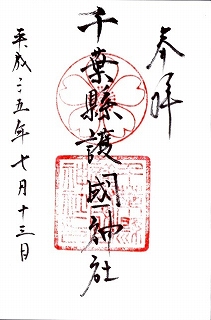 奉拝
千葉縣護國神社
平成二五年七月十三日